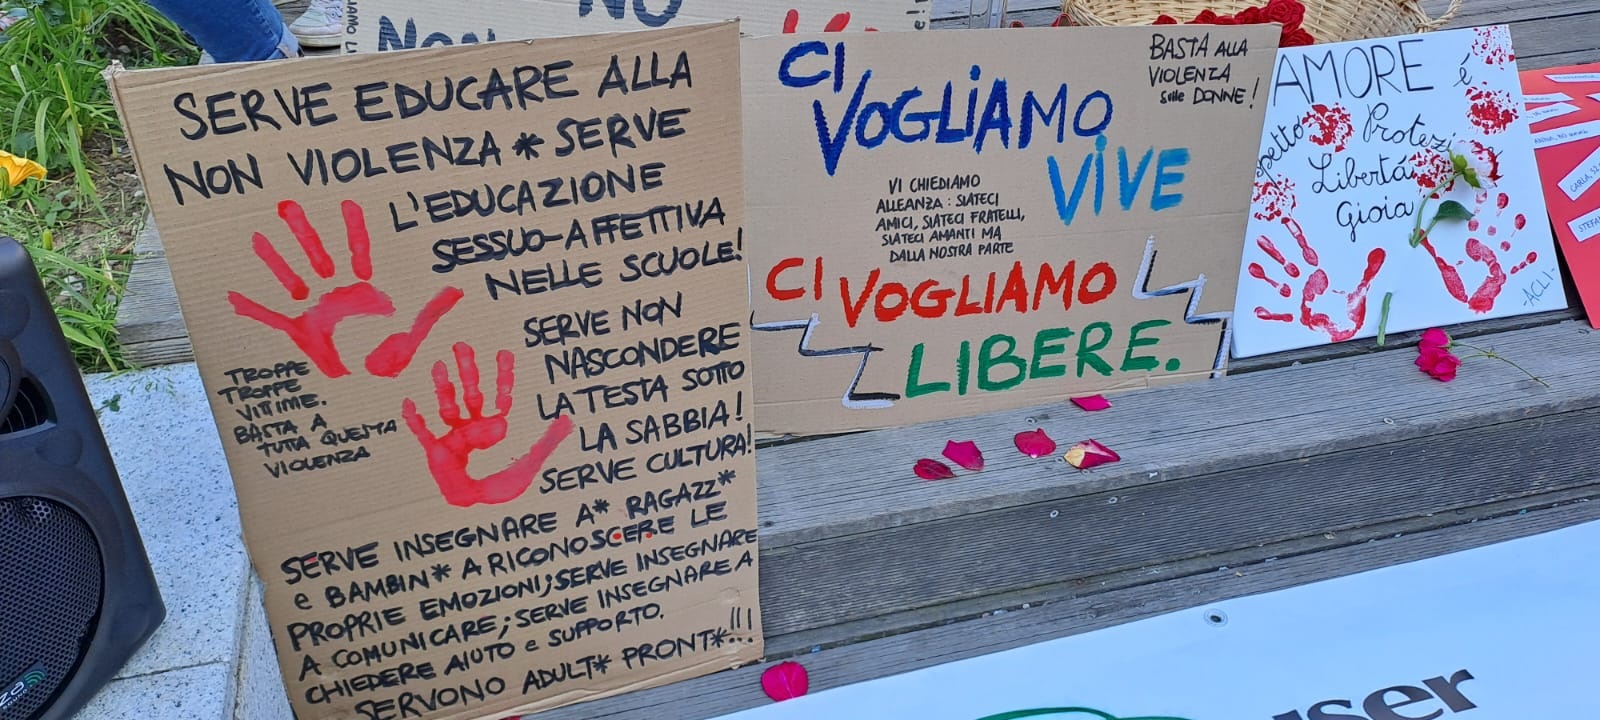 NO
NON
SERVE EDUCARE ALLA
NON VIOLENZA * SERVE
L'EDUCAZIONE
SESSUO-AFFETTIVA
NELLE SCUOLE!
SERVE NON
NASCONDERE
LA TESTA SOTTO
LA SABBIA!
SERVE CULTURA!
TROPPE
TROPPE
VITTIME.
BASTA A
TUTTA QUESTA
VIOLENZA
SERVE INSEGNARE A* RAGAZZ*
e BAMBIN* A RICONOSCERE LE
PROPRIE EMOZIONI; SERVE INSEGNARE
A COMUNICARE; SERVE INSEGNARE A
CHIEDERE AIUTO e SUPPORTO.
SERVONO ADULT* PRONT*!!!
CI
VOGLIAMO
VIVE
BASTA ALLA
VIOLENZA
sulle DONNE!
VI CHIEDIAMO
ALLEANZA: SIATECI
AMICI, SIATECI FRATELLI,
SIATECI AMANTI MA
DALLA NOSTRA PARTE
CI VOGLIAMO
LIBERE.
AMORE é
Libertá
Gioia
-ACLI-
CARLA, 52
STEFA
user